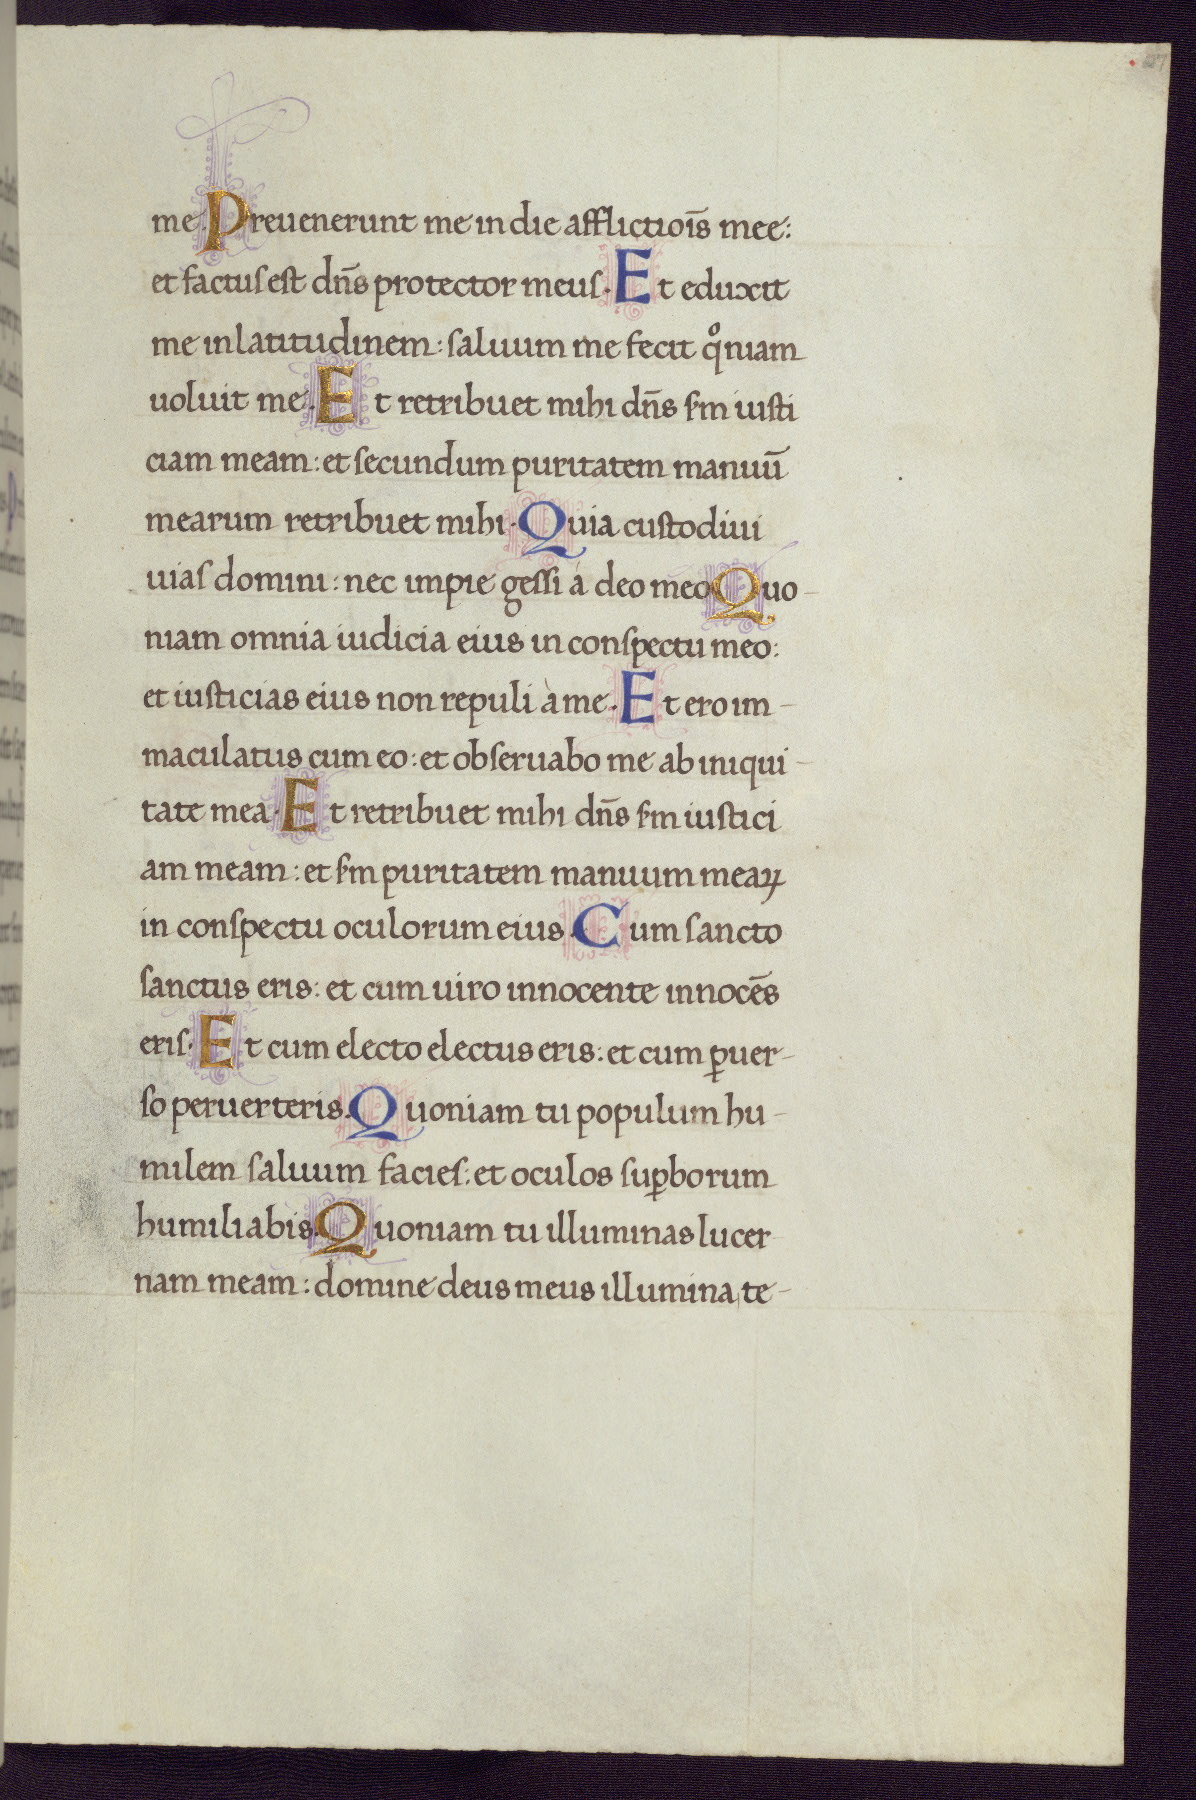 me. Preuenerunt me in die afflictiois̄ mee:
et factus est dn̄s protector meus. Et eduxit
me in latitudinem: saluum me fecit qͦniam
uoluit me. Et retribuet mihi dn̄s s̄m iusti
ciam meam: et secundum puritatem manuū
mearum retribuet mihi. Quia custodiui
uias domini: nec impie gessi á deo meo Quo-
niam omnia iudicia eius in conspectu meo:
et iusticias eius non repuli à me. Et ero im-
maculatus cum eo: et obseruabo me ab iniqui-
tate mea. Et retribuet mihi dn̄s s̄m iustici
am meam: et s̄m puritatem manuum meaꝝ
in conspectu oculorum eius. Cum sancto
sanctus eris: et cum uiro innocente innocēs
eris. Et cum electo electus eris: et cum ꝑuer-
so peruerteris. Quoniam tu populum hu-
milem saluum facies: et oculos suꝑborum
humiliabis. Quoniam tu illuminas lucer
nam meam: domine deus meus illumina te-